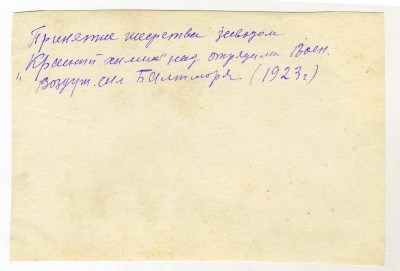 Принятие шефства заводом
"Красный химик" над отрядами Воен.
Воздуш. сил Балтморя (1923 г)